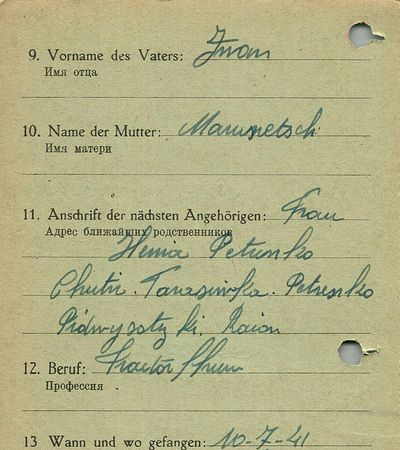 9. Vorname des Vaters: Iwan
Имя отца
10. Name der Mutter:
Имя матери
11. Anschrift der nächsten Angehörigen: Frau
Адрес ближайших родственников
Petrenko
Chutir. Petrenko
Pidwysotzki. Raion
12. Beruf:
Профессия
13 Wann und wo gefangen: 10-7-41